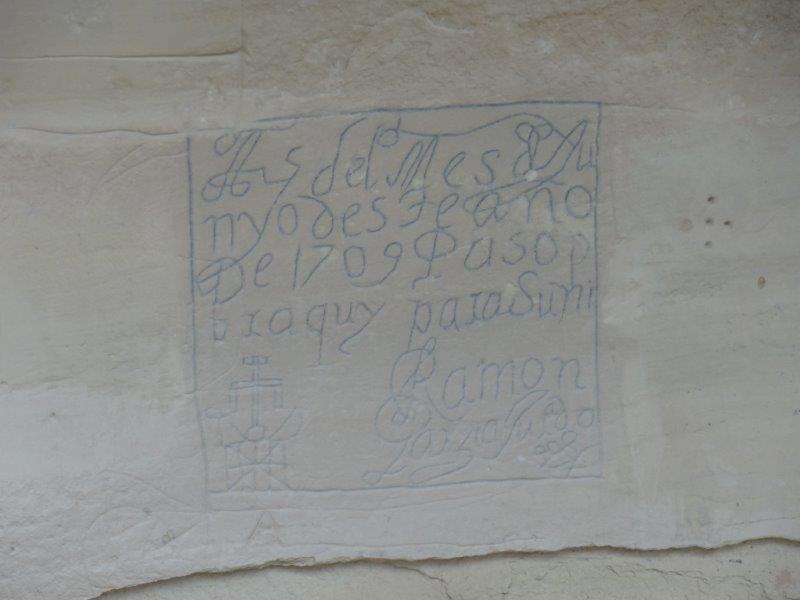 A 5 del Mes d Ju
nyo deste año
De 1709 Paso p
or aquy para Suñi
Ramon
Garzia Jurado
A